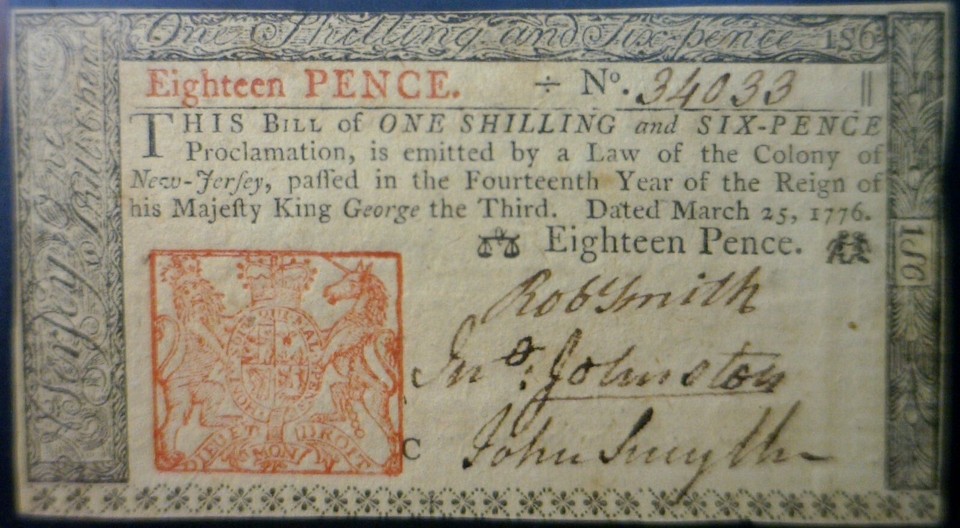 One Shilling and Six-pence 1s6
Eighteen PENCE. ÷ No. 34033
THIS BILL of ONE SHILLING and SIX-PENCE
Proclamation, is emitted by a Law of the Colony of
New-Jerſey, paſſed in the Fourteenth Year of the Reign of
his Majeſty King George the Third. Dated March 25, 1776.
Eighteen Pence.
1s6
RobSmith
Jno. Johnston
C John Smyth
DIEU ET MON DROIT